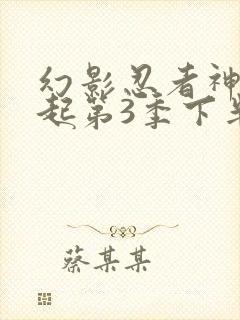 幻影忍者神
起第3季下
蔡某某